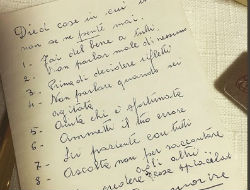 Dieci cose in cui
non se ne pente mai:
1 - Fai del bene a tutti
2 - Non parlar male di nessuno
3 - Prima di decidere rifletti
4 - Non parlare quando sei
agitata
5 - Aiuta chi è sfortunato
6 - Ammetti il tuo errore
7 - Sii paziente con tutti
8 - Ascolta non per raccontare
agli altri